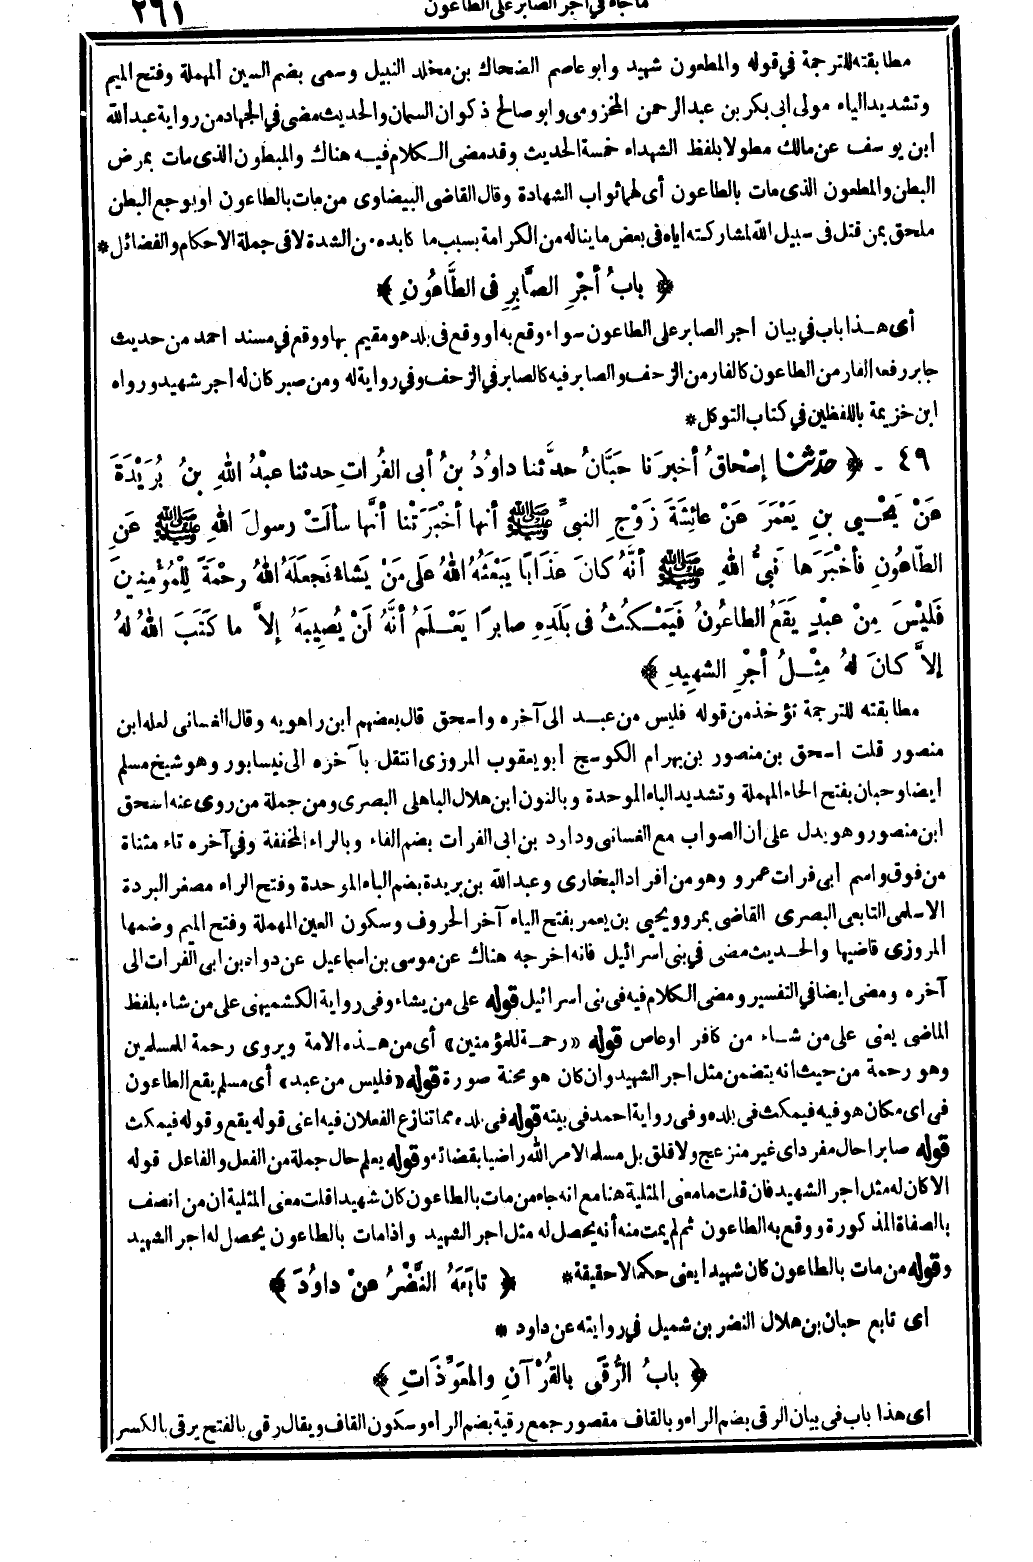 ما جاء في أجر الصابر على الطاعون
٢٦١
مطابقته للترجمة في قوله والمطعون شهيد وابو عاصم الضحاك بن مخلد النبيل وسمى بضم السين المهملة وفتح الميم
وتشديد الياء مولى ابى بكر بن عبد الرحمن المخزومى وابو صالح ذكوان السمان والحديث مضى في الجهاد من رواية عبد الله
ابن يوسف عن مالك مطولا بلفظ الشهداء خمسة الحديث وقد مضى الكلام فيه هناك والمبطون الذى مات بمرض
البطن والمطعون الذى مات بالطاعون أى لهما ثواب الشهادة وقال القاضى البيضاوى من مات بالطاعون او بوجع البطن
ملحق بمن قتل فى سبيل الله لمشاركته اياه فى بعض ما يناله من الكرامة بسبب ما كابده من الشدة لا فى جملة الاحكام والفضائل *
﴿ بابُ أجْرِ الصَّابِرِ فى الطَّاعُونِ ﴾
أى هذا باب في بيان اجر الصابر على الطاعون سواء وقع به او وقع فى بلد هو مقيم بها ووقع في مسند احمد من حديث
جابر رفعه الفار من الطاعون كالفار من الزحف والصابر فيه كالصابر في الزحف وفي رواية له ومن صبر كان له اجر شهيد ورواه
ابن خزيمة باللفظين في كتاب التوكل *
٤٩ ـ ﴿ حدثنا إسْحاقُ أخبرَنا حَبَّانُ حدَّثنا داوُدُ بنُ أبى الفُراتِ حدثنا عبْدُ اللهِ بنُ بُرَيْدَةَ
عَنْ يَحْيى بنِ يَعْمَرَ عَنْ عائِشَةَ زَوْجِ النبىِّ ﷺ أنها أخْبَرَتْنا أنَّها سألَتْ رسولَ اللهِ ﷺ عَنِ
الطّاعُونِ فأخْبَرَها نَبىُّ اللهِ ﷺ أنَّهُ كانَ عَذَابًا يَبْعَثُهُ اللهُ عَلَى مَنْ يَشاءُ فَجعَلَهُ اللهُ رحْمَةً لِلْمُؤْمِنِينَ
فَليْسَ مِنْ عبْدٍ يَقَعُ الطاعُونُ فَيَمْكُثُ فى بَلَدِهِ صابرًا يَعْلَمُ أنَّهُ لَنْ يُصِيبَهُ إلاَّ ما كَتَبَ اللهُ لهُ
إلاَّ كانَ لهُ مِثْلُ أجْرِ الشهِيدِ ﴾
مطابقته للترجمة تؤخذ من قوله فليس من عبد الى آخره واسحق قال بعضهم ابن راهويه وقال الغسانى لعله ابن
منصور قلت اسحق بن منصور بن بهرام الكوسج ابو يعقوب المروزى انتقل بآخره الى نيسابور وهو شيخ مسلم
ايضا وحبان بفتح الحاء المهملة وتشديد الباء الموحدة وبالنون ابن هلال الباهلى البصرى ومن جملة من روى عنه اسحق
ابن منصور وهو يدل على ان الصواب مع الغسانى ودارد بن ابى الفرات بضم الفاء وبالراء المخففة وفي آخره تاء مثناة
من فوق واسم ابى فرات عمرو وهو من افراد البخارى وعبد الله بن بريدة بضم الباء الموحدة وفتح الراء مصغر البردة
الاسلمى التابعى البصرى القاضى بمرو ويحيى بن يعمر بفتح الياء آخر الحروف وسكون العين المهملة وفتح الميم وضمها
المروزى قاضيها والحديث مضى في بنى اسرائيل فانه اخرجه هناك عن موسى بن اسماعيل عن دواد بن ابى الفرات الى
آخره ومضى ايضا في التفسير ومضى الكلام فيه فى بنى اسرائيل قوله على من يشاء وفى رواية الكشميهنى على من شاء بلفظ
الماضى يعنى على من شاء من كافر او عاص قوله «رحمة للمؤمنين» أى من هذه الامة ويروى رحمة للمسلمين
وهو رحمة من حيث انه يتضمن مثل اجر الشهيد وان كان هو محنة صورة قوله «فليس من عبد» أى مسلم يقع الطاعون
فى اى مكان هو فيه فيمكث فى بلده وفى رواية احمد فى بيته قوله فى بلده مما تنازع الفعلان فيه اعنى قوله يقع وقوله فيمكث
قوله صابرا حال مفرد اى غير منزعج ولا قلق بل مسلما لامر الله راضيا بقضائه وقوله يعلم حال جملة من الفعل والفاعل قوله
الا كان له مثل اجر الشهيد فان قلت ما معنى المثلية هنا مع انه جاء من مات بالطاعون كان شهيدا قلت معنى المثلية ان من اتصف
بالصفاة المذكورة ووقع به الطاعون ثم لم يمت منه أنه يحصل له مثل اجر الشهيد واذا مات بالطاعون يحصل له اجر الشهيد
وقوله من مات بالطاعون كان شهيدا يعنى حكما لا حقيقة * ﴿ تابَعَهُ النَّضْرُ عنْ داوُدَ ﴾
اى تابع حبان بن هلال النضر بن شميل في روايته عن داود *
﴿ بابُ الرُّقَى بالقُرْآنِ والمعَوِّذَاتِ ﴾
اى هذا باب فى بيان الرقى بضم الراء وبالقاف مقصور جمع رقية بضم الراء وسكون القاف ويقال رقى بالفتح يرقى بالكسر